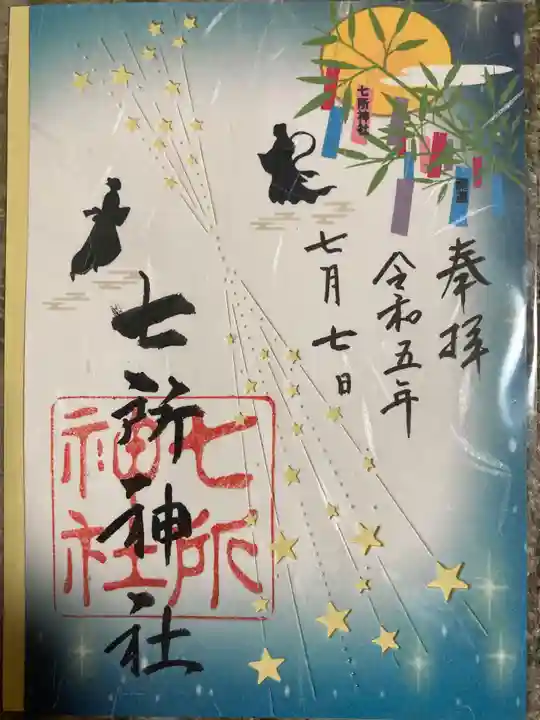 七所神社
奉拝
令和五年
七月七日
七所神社
七所
神社